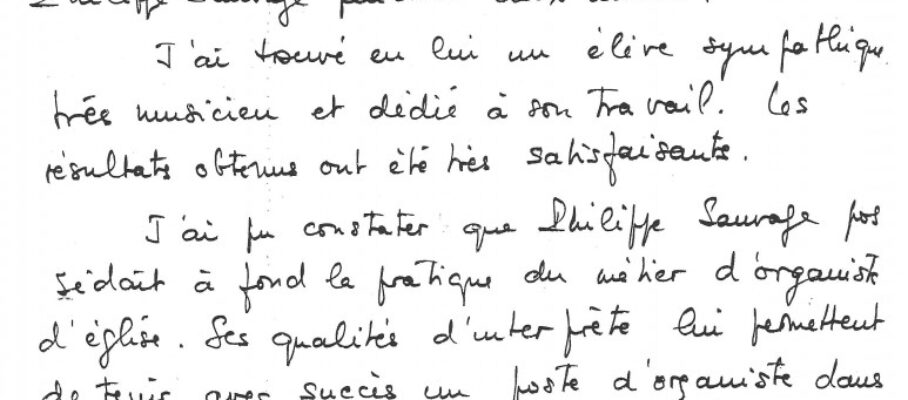 Philippe Sauvage
J'ai trouvé en lui un élève sympathique
très musicien et dédié à son travail. Les
résultats obtenus ont été très satisfaisants.
J'ai pu constater que Philippe Sauvage pos
sédait à fond la pratique du métier d'organiste
d'église. Ses qualités d'interprète lui permettent
de tenir avec succès un poste d'organiste dans